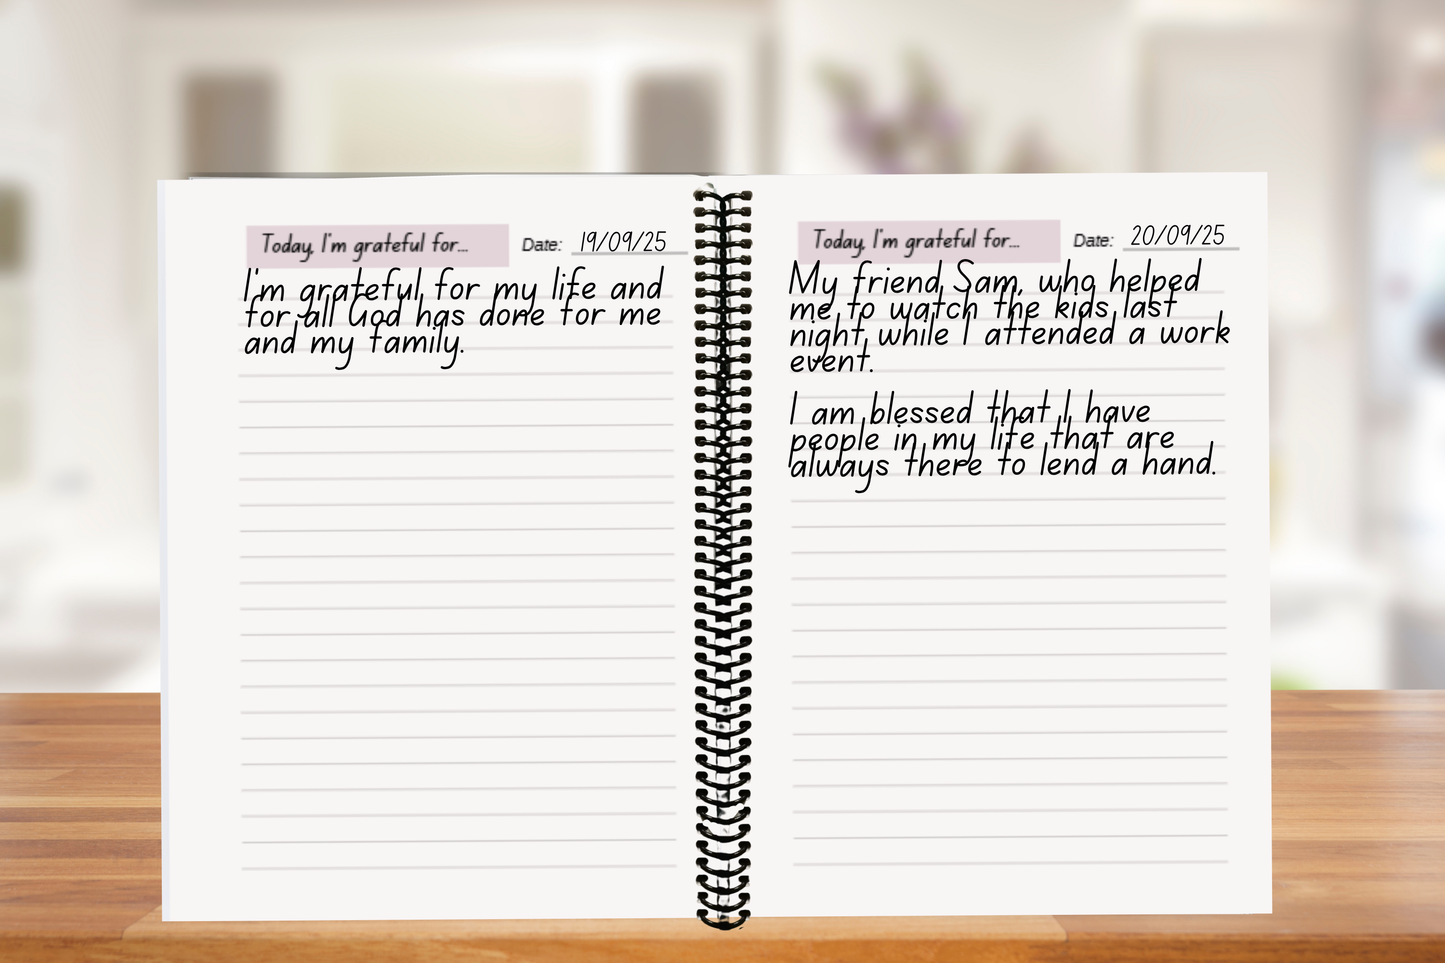 Today, I'm grateful for...
Date: 19/09/25
I'm grateful for my life and
for all God has done for me
and my family.
Today, I'm grateful for...
Date: 20/09/25
My friend Sam, who helped
me to watch the kids last
night, while I attended a work
event.
I am blessed that I have
people in my life that are
always there to lend a hand.